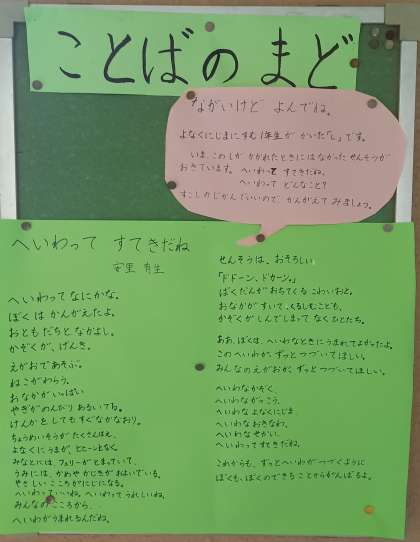 ことばのまど
ながいけど よんでね。
よなくにじまにすむ1年生が かいた「し」です。
いま、このしが かかれたときには なかった せんそうが
おきています。へいわって すてきだね。
へいわって どんなこと?
すこしの じかんでいいので、かんがえて みましょう。
へいわって すてきだね
安里 有生
へいわってなにかな。
ぼくは かんがえたよ。
おともだちと なかよし。
かぞくが、げんき。
えがおであそぶ。
ねこがわらう。
おなかがいっぱい。
やぎがのんびり あるいてる。
けんかをしても すぐなかなおり。
ちょうめいそうが たくさんはえ、
よなぐにうまが、ヒヒーンとなく。
みなとには、フェリーがとまっていて、
うみには、かめや かじきが およいでいる。
やさしい こころがにじになる。
へいわっていいね。へいわってうれしいね。
みんなのこころから、
へいわがうまれるんだね。
せんそうは、おそろしい。
「ドドーン、ドカーン。」
ばくだんが おちてくる こわいおと。
おなかがすいて、くるしむこども。
かぞくが しんでしまって なくひとたち。
ああ、ぼくは、へいわなときに うまれてよかったよ。
このへいわが、ずっと つづいてほしい。
みんなのえがおが、ずっと つづいてほしい。
へいわなかぞく、
へいわながっこう、
へいわな よなぐにじま、
へいわな おきなわ、
へいわな せかい、
へいわって すてきだね。
これからも、ずっと へいわが つづくように
ぼくも、ぼくのできる ことから がんばるよ。